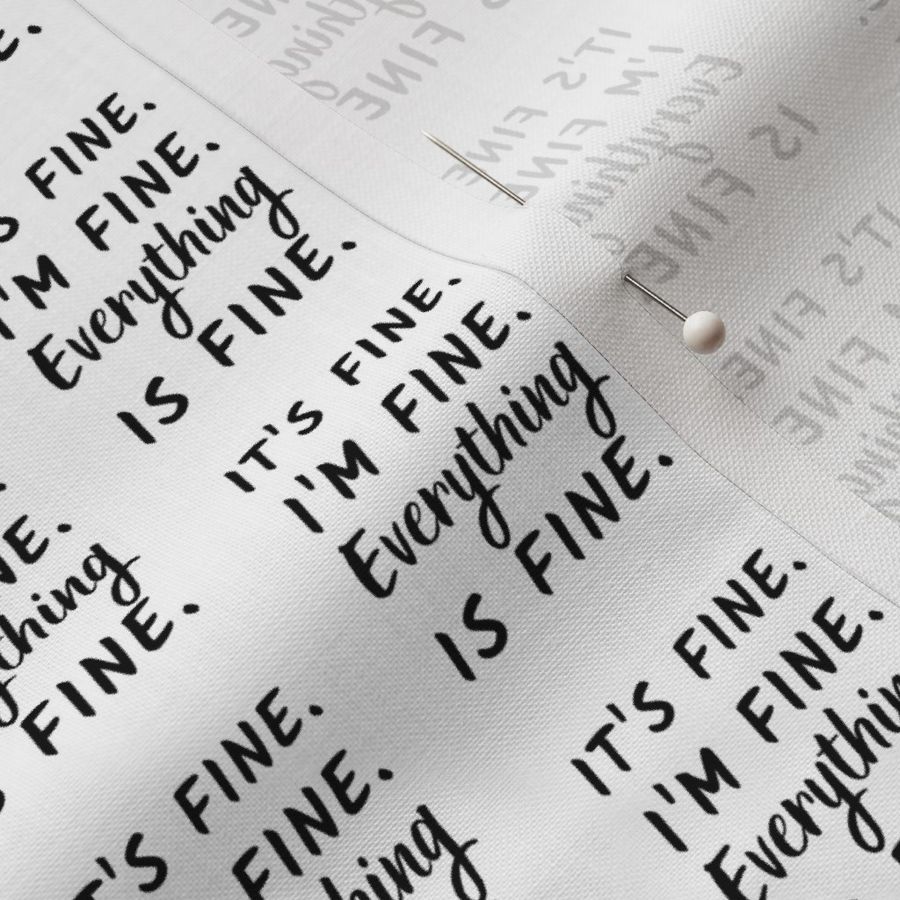 IT'S FINE.
I'M FINE.
Everything
IS FINE.
S FINE.
I'M FINE.
Everything
IS FINE.
IT'S FINE.
I'M FINE.
Everything
IS FINE.
NE.
thing
FINE.
IT'S FINE.
I'M FINE.
Everythin
T'S FINE.
FINE.
hing